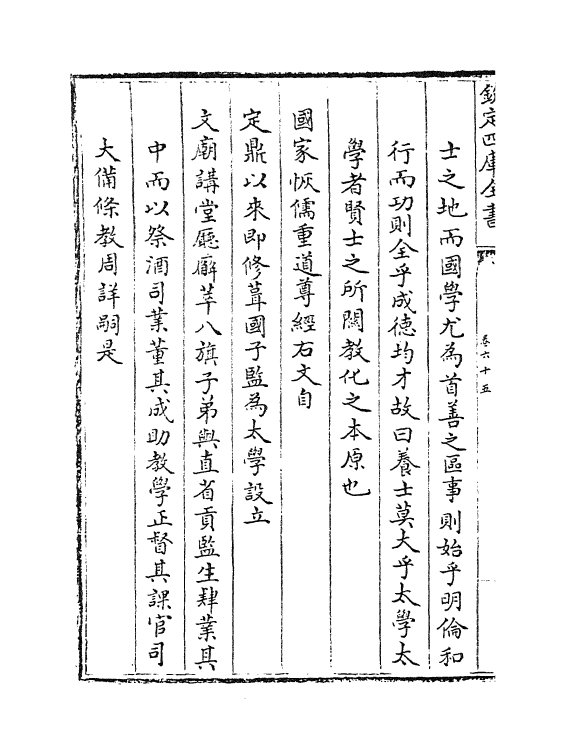 欽定四庫全書
卷六十五
士之地而國學尤為首善之區事則始乎明倫和
行而功則全乎成徳均才故曰養士莫大乎太學太
學者賢士之所闗教化之本原也
國家恢儒重道尊經右文自
定鼎以來即修葺國子監為太學設立
文廟講堂廳廨萃八旗子弟與直省貢監生肄業其
中而以祭酒司業董其成助教學正督其課官司
大備條教周詳嗣是